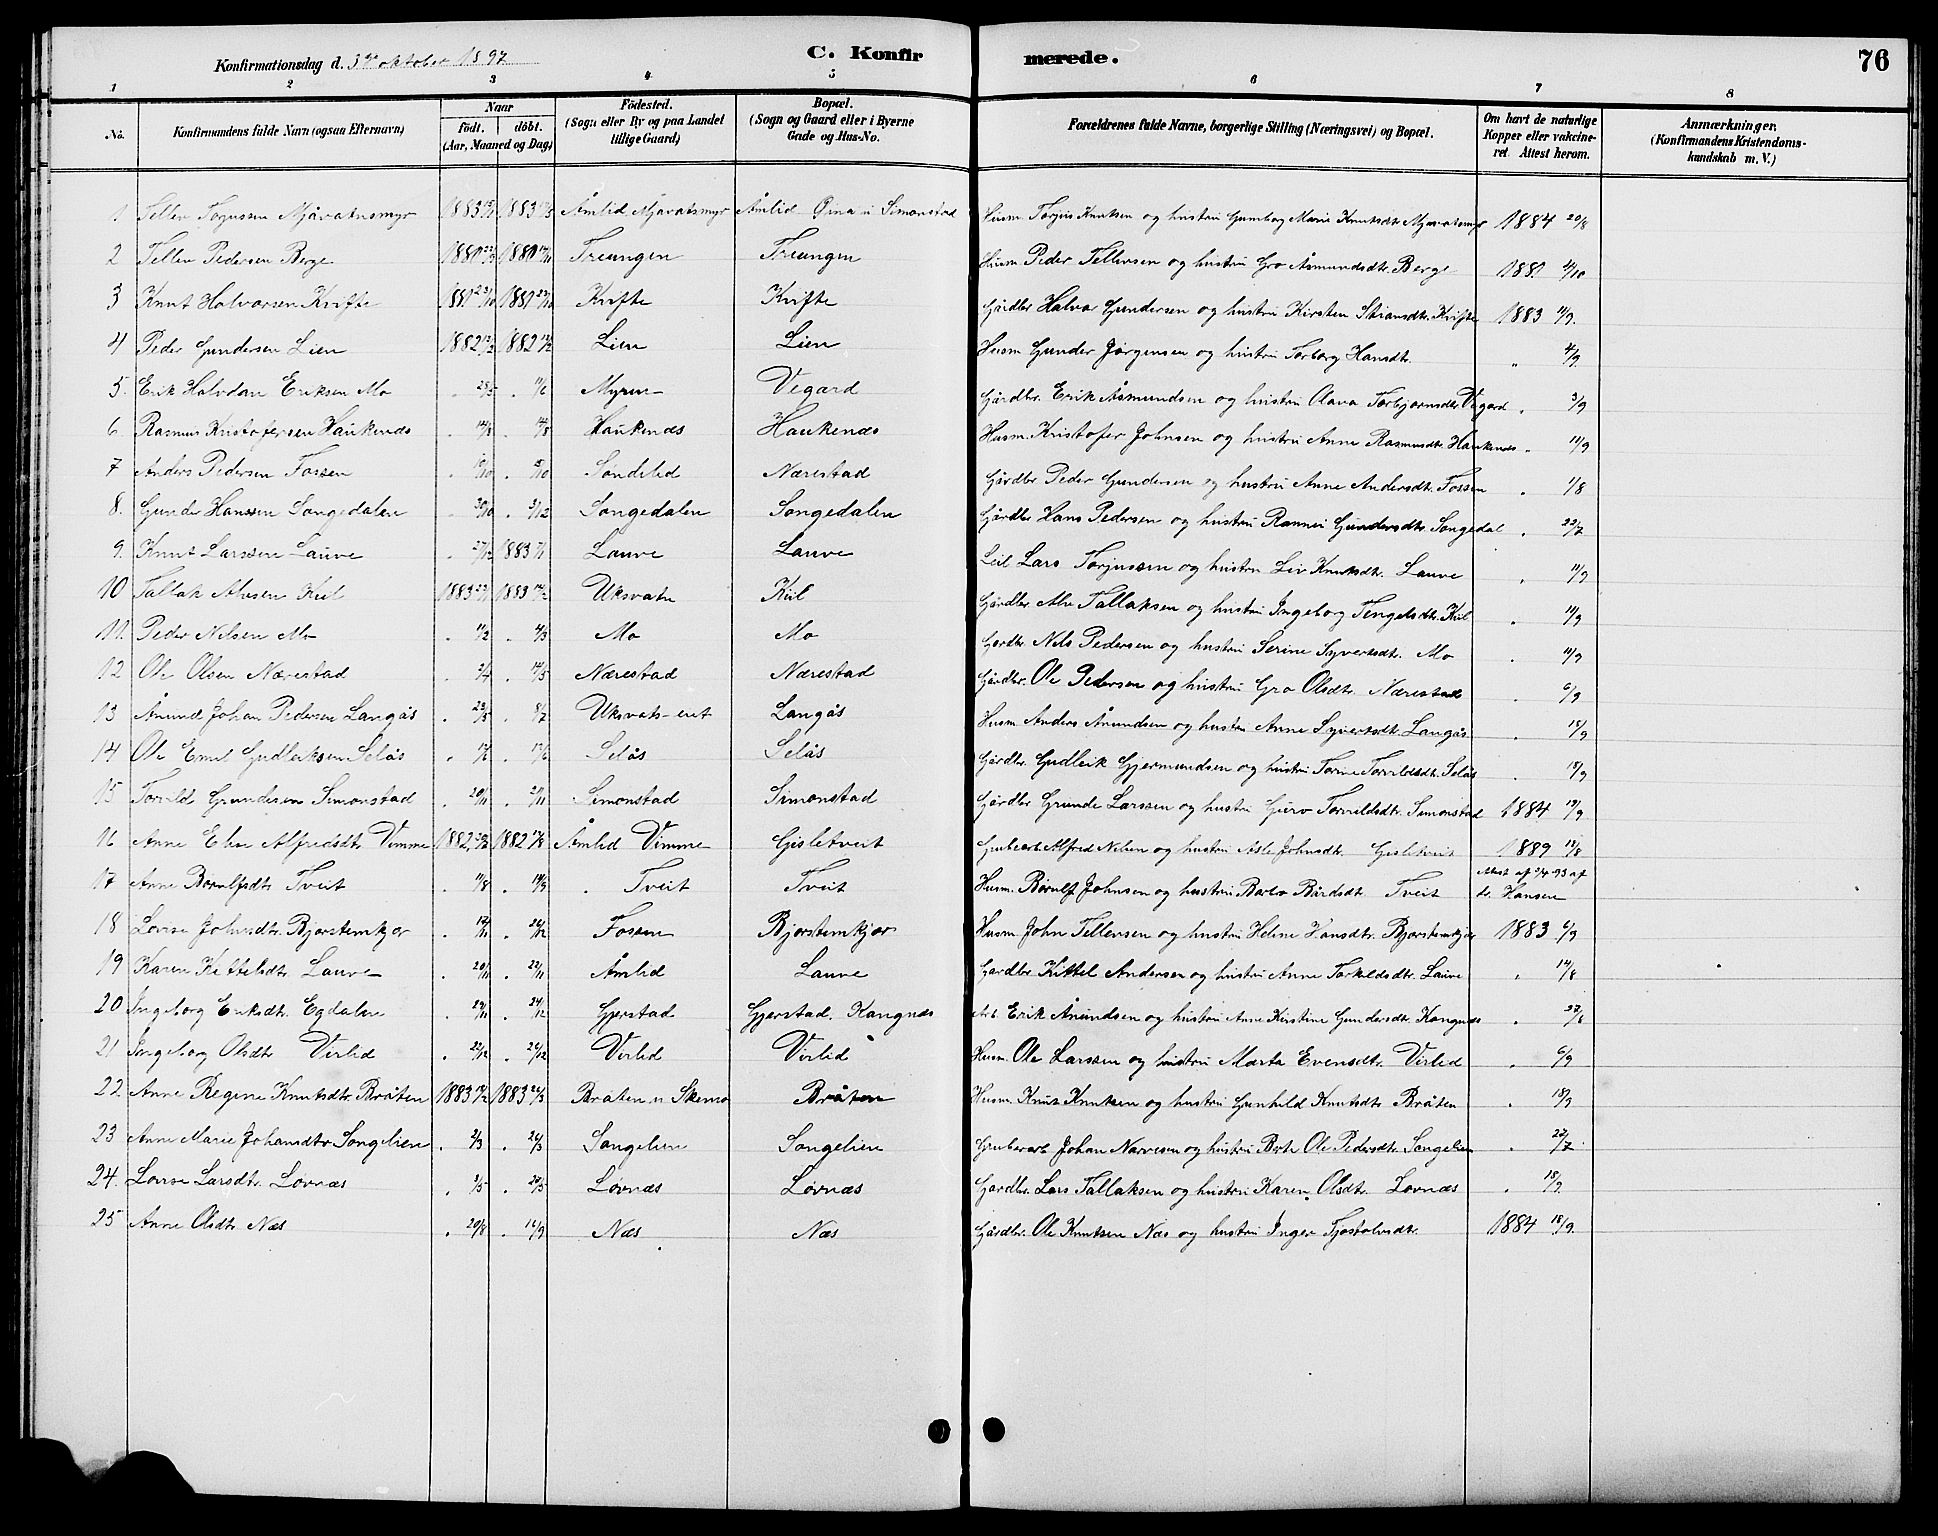 Konfirmationsdag d. 3die oktober 1897
C. Konfirmerede.
76
1 2 3 4 5 6 7 8
No.
Konfirmandens fulde Navn (ogsaa Efternavn)
Naar
født. døbt.
(Aar, Maaned og Dag)
Fødested.
(Sogn eller By og paa Landet
tillige Gaard)
Bopæl.
(Sogn og Gaard eller i Byerne
Gade og Hus-No.
Forældrenes fulde Navne, borgerlige Stilling (Næringsvei) og Bopæl.
Om havt de naturlige
Kopper eller vakcine-
ret. Attest herom.
Anmærkninger.
(Konfirmandens Kristendoms-
kundskab m. V.)
1 Tellev Torjussen Mjåvatnsmyr 1883 1883 Åmlid, Mjåvatsmyr Åmlid Øina u Simonstad Husm Torjus Knutsen og hustru Gunborg Marie Knutsdtr Mjåvatsmyr 1884 20/8
2 Tellev Pedersen Berge 1881 1881 Treungen Treungen Husm Peder Tellevsen og hustru Gro Åsmundsdtr. Berge 1881 4/10
3 Knut Halvorsen Kvifte 1881 23/10 1881 27/10 Kvifte Kvifte Gårdbr Halvor Gundersen og hustru Kirsten Stiansdtr. Kvifte 1883 11/9.
4 Peder Gundersen Lien 1882 1882 Lien Lien Husm Gunder Jørgensen og hustru Torborg Hansdtr. " 4/9.
5. Erik Halvdan Eriksen Mo . 25/5 . 11/6 Myren Vegard Gårdbr. Erik Åsmundsen og hustru Olava Torbjørnsdtr. Vegard . 3/9
6 Rasmus Kristofersen Haukenæs . 14/8 . Haukenæs Haukenæs Husm. Kristofer Johnsen og hustru Anne Rasmusdtr. Haukenæs . 11/9
7 Anders Pedersen Fossen . 10/10 . /10 Søndeled Nærestad Gårdbr Peder Gundersen og hustru Anne Andersdtr. Fossen . 1/8
8. Gunder Hanssen Songedalen . 30/10 . 3/12 Songedalen Songedalen Gårdbr Hans Pedersen og hustru Ranvei Gundersdtr. Songedal . 22/7
9. Knut Larssen Lauve . 27/12 1883 7/1 Lauve Lauve Leil Lars Torjussen og hustru Liv Knutsdtr. Lauve . 11/9
10 Tallak Alvsen Kiil 1883 1883 Uksvatn Kiil Gårdbr Alv Tallaksen og hustru Ingeborg Tengelsdtr. Kiil . 11/9
11. Peder Nilsen Mo . 11/2 . 4/3 Mo Mo Gardbr Nils Pedersen og hustru Serine Syvertsdtr. Mo . 11/9
12 Ole Olsen Nærestad . 3/4 . 14/5 Nærestad Nærestad Gårdbr. Ole Pedersen og hustru Gro Olsdtr. Nærestad . 6/9
13 Ånund Johan Pedersen Langås . 23/5 . 8/7 Uksvats-eit Langås Husm Anders Ånundsen og hustru Anne Syvertsdtr. Langås . 15/9
14 Ole Emil Gudleiksen Selås . . Selås Selås Gårdbr. Gudleik Gjermundsen og hustru Torine Torvildsdtr. Selås . 15/9
15 Torvild Grundesen Simonstad . 20/11 . Simonstad Simonstad Gårdbr Grunde Larssen og hustru Guro Torvildsdtr. Simonstad 1884 19/9
16 Anne Elise Alfredsdtr Vimme 1882 1882 Åmlid Vimme Gisletveit Grubearb. Alfred Nilsen og hustru Asle Johnsdtr. Gisletveit 1889 13/8
17 Anne Børulfsdtr Tveit . 11/8 . 14/9 . Tveit Tveit Husm. Børulf Johnsen og hustru Barbro Bårdsdtr. Tveit Attest af 3/4 93 af dr. Hansen
18 Lovise Johnsdtr. Bjørstemkjør . . Fossen Bjørstemkjør Husm. John Tellevsen og hustru Helene Hansdtr. Bjørstemkjør 1883 6/9
19 Karen Kittelsdtr. Lauve . 20/11 . 22/11 Åmlid Lauve Gardbr. Kittel Andersen og hustru Anne Torkildsdtr. Lauve . 14/8
20 Ingeborg Eriksdtr. Egdalen . 29/11 . 24/12 Gjerstad Gjerstad. Kangnæs Arb Erik Ånundsen og hustru Anne Kirstine Gundersdtr. Kangnæs . 22/8
21 Ingeborg Olsdtr Virlid . 22/12 . 26/12 Virlid Virlid Husm. Ole Larssen og hustru Marta Evensdtr. Virlid . 6/9
22 Anne Regine Knutsdtr. Bråten 1883 1883 Bråten u Skemo Bråten Husm. Knut Knutsen og hustru Gunhild Knutsdtr. Bråten . 18/9
23 Anne Marie Johansdtr Songelien . 2/3 . 26/3 Songelien Songelien Grubearb Johan Narvesen og hustru Berte Ole Pedersdtr. Songelien . 22/7
24. Lovise Larsdtr. Løvnæs . 3/5 . 20/5 Løvnæs Løvnæs Gardbr. Lars Tallaksen og hustru Karen Olsdtr. Løvnæs . 18/9.
25 Anne Olsdtr. Næs . 20/8 . 16/9 Næs Næs Gårdbr. Ole Knutsen Næs og hustru Inger Tjostolvsdtr. 1884 18/9.